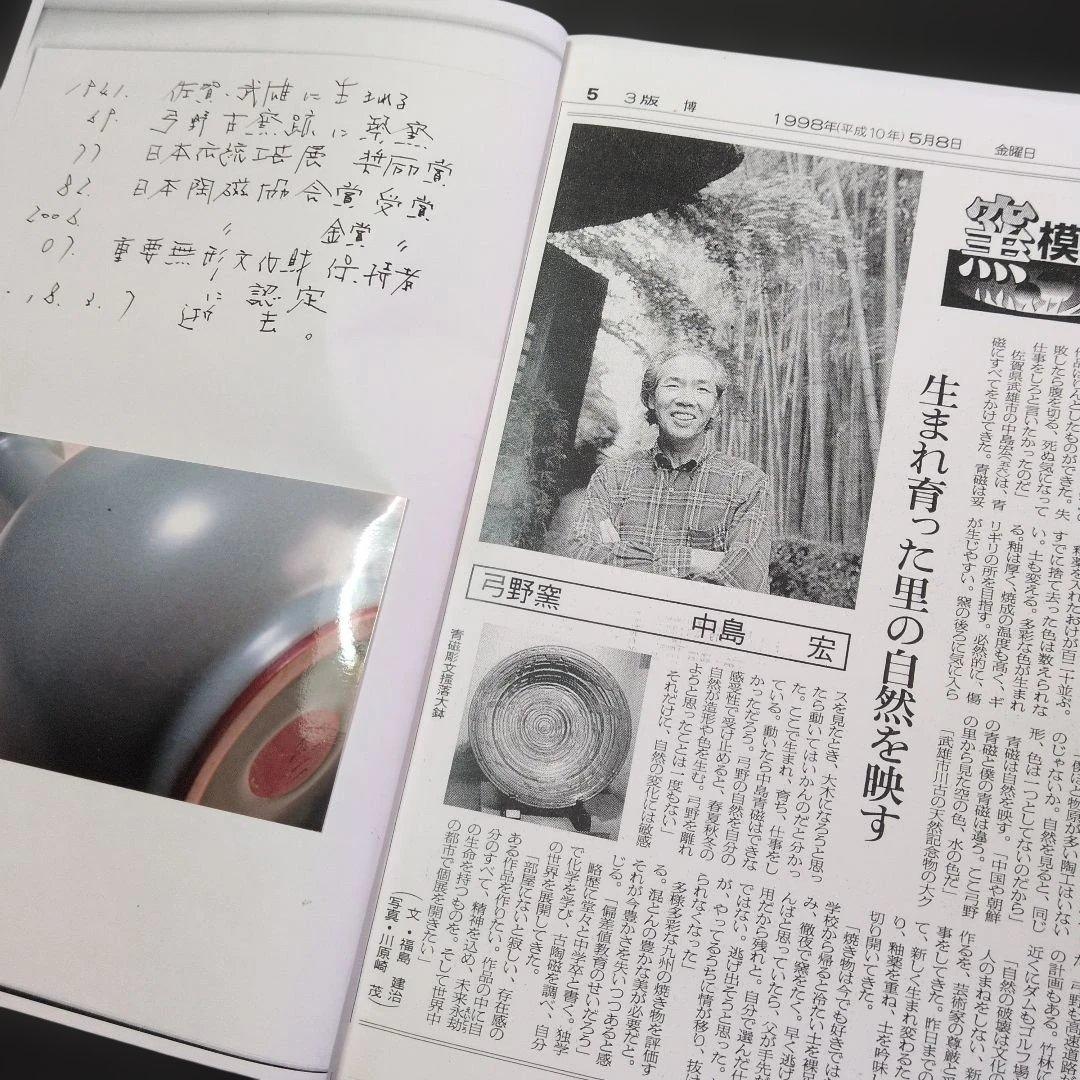 1941. 佐賀・武雄に生まれる
69. 弓野古窯跡に築窯
77 日本伝統工芸展 奨励賞
82 日本陶磁協会賞受賞
2006. 〃 金賞 〃
07. 重要無形文化財保持者
に認定
18.3.7 逝去。
5 3版 博
1998年(平成10年)5月8日 金曜日
窯模
生まれ育った里の自然を映す
弓野窯 中島 宏
青磁彫文掻落大鉢
敗したら腹を切る、死ぬ気になって
仕事をしろと言いたかったのだ」
佐賀県武雄市の中島宏
磁にすべてをかけてきた。青磁は妥
釉薬を入れたおけが百二十並ぶ。
すでに捨て去った色は数えられな
い。土も変える。多彩な色が生まれ
る。釉は厚く、焼成の温度も高く、ギ
リギリの所を目指す。必然的に、傷
が生じやすい。窯の後ろに気に入ら
「僕ほど物原が多い陶工はいない
のじゃないか。自然を見ると、同じ
形、色は一つとしてないのだから」
青磁は自然を映す。「中国や朝鮮
の青磁と僕の青磁は違う。ここ弓野
の里から見た空の色、水の色だ」
「武雄市川古の天然記念物の大ク
スを見たとき、大木になろうと思っ
たら動いてはいかんのだと分かっ
た。ここで生まれ、育ち、仕事をし
ている。動いたら中島青磁はできな
かっただろう。弓野の自然を自分の
感受性で受け止めると、春夏秋冬の
自然が造形や色を生む。弓野を離れ
ようと思ったことは一度もない」
それだけに、自然の変化には敏感
弓野も高速道路が
の計画もある。竹林に
近くにダムもゴルフ場
「自然の破壊は文化の
人のまねをしない、新
作るを、芸術家の尊厳と
事をしてきた。昨日までの
て、新しく生まれ変わるた
り、釉薬を重ね、土を吟味し
切り開いてきた。
「焼き物は今でも好きでは
学校から帰ると冷たい土を裸足
み、徹夜で窯をたく。早く逃げ
んばと思っていたら、父が手先が
用だから残れと。自分で選んだ仕
ではない。逃げ出そうと思った
が、やってるうちに情が移り、抜け
られなくなった」
多様多彩な九州の焼き物を評価す
る。混とんの豊かな美が必要だと。
それが今豊かさを失いつつあると感
じる。「偏差値教育のせいだろう」
略歴に堂々と中学卒と書く。独学
で化学を学び、古陶磁を調べ、自分
の世界を展開してきた。
「部屋にないと寂しい、存在感の
ある作品を作りたい。作品の中に自
分のすべて、精神を込め、未来永劫
の生命を持つものを。そして世界中
の都市で個展を開きたい」
(文・福島 建治)
(写真・川原崎 茂)